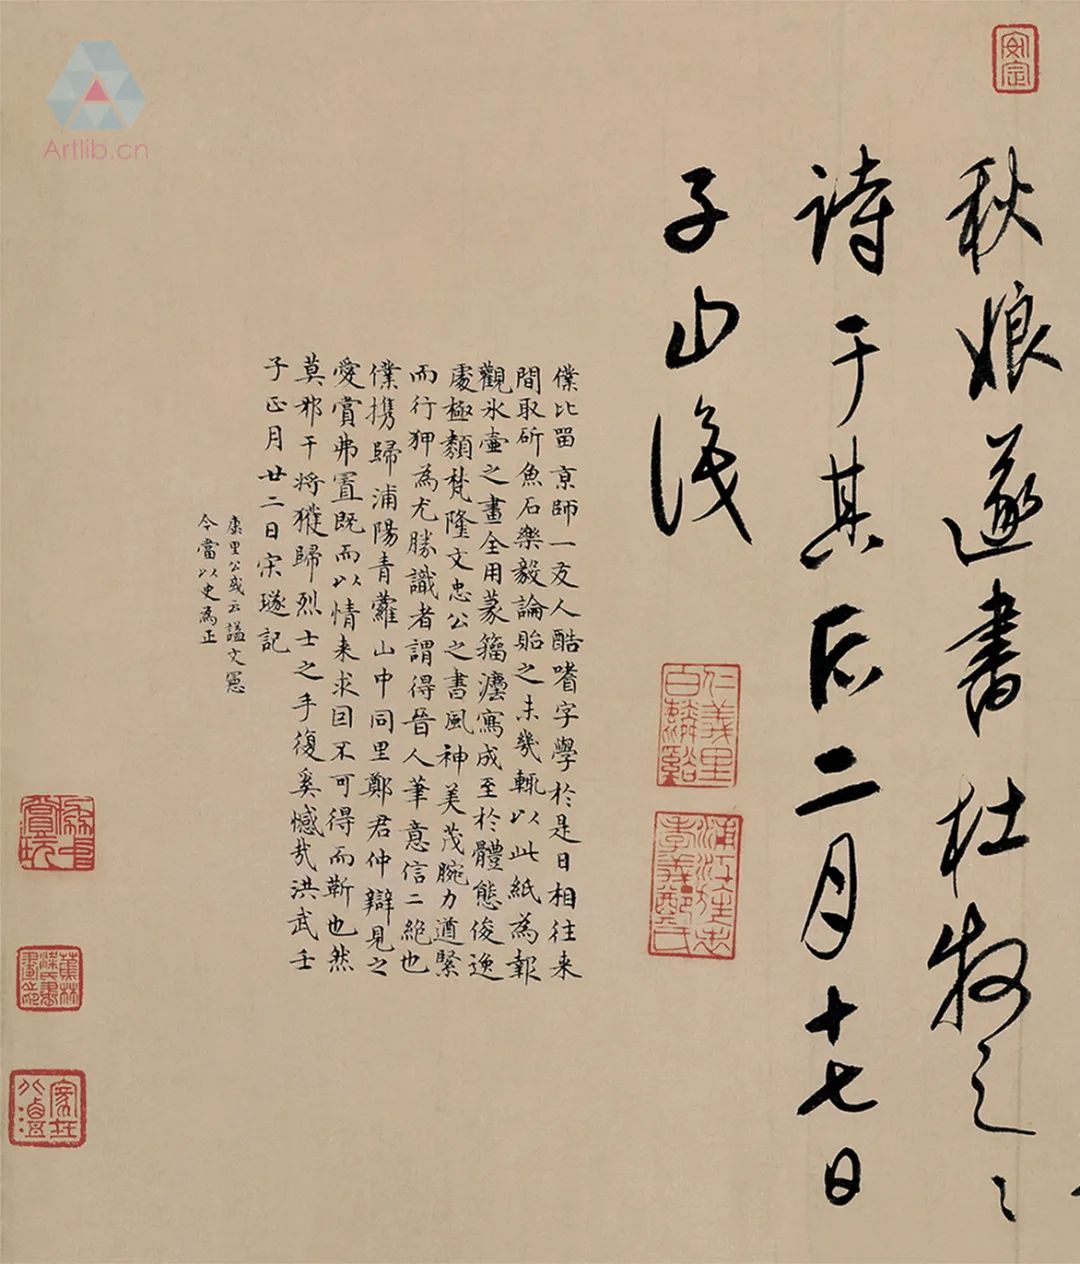 安定
秋娘遂書杜牧之〻
詩于其后二月十七日
子山識
仁義里
白麟谿
浦江旌忠
孝義鄭氏
僕比留京師一友人酷嗜字學於是日相往来
間取斫魚石樂毅論貽之未幾輒以此紙為報
觀氷壷之畫全用篆籀灋寫成至於體態俊逸
處極類梵隆文忠公之書風神美茂腕力遒緊
而行狎為尤勝識者謂得晉人筆意信二絶也
僕携歸浦陽青蘿山中同里鄭君仲辯見之
愛賞弗置既而以情来求固不可得而靳也然
莫邪干将獲歸烈士之手復奚憾㢤洪武壬
子正月廿二日宋璲記
康里公或云謚文憲
今當以史為正
蕉林
梁氏書
畫之印
家在
北潭
Artlib.cn